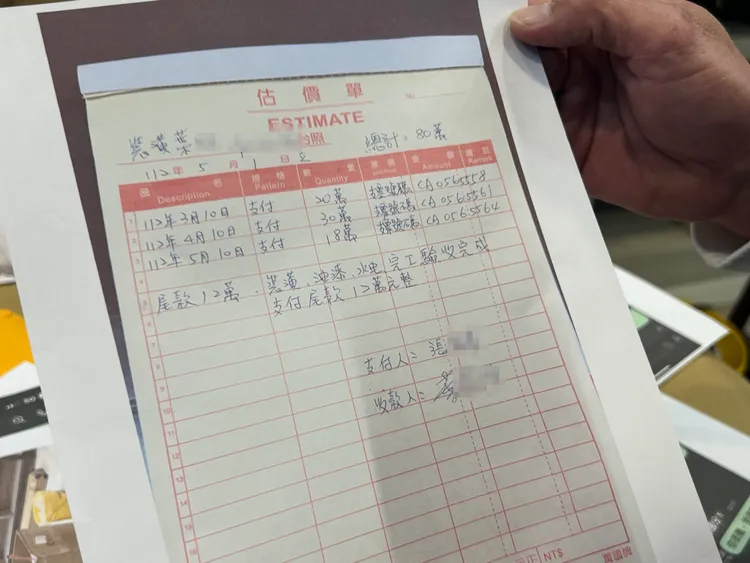 估價單
No.
ESTIMATE
裝潢業 台照 總計:80萬
112年5月1日
品名 規格 數量 單價 金額 備註
Description Pattern Quantity Unit Price Amount Remark
1 112年3月10日 支付 20萬 票號碼 CA0565558
2 112年4月10日 支付 30萬 票號碼 CA0565561
3 112年5月10日 支付 18萬 票號碼 CA0565564
5 尾款12萬、裝潢、油漆、水电完工驗收完成
支付尾款12萬完整
6
7
8 支付人:張
9
10 收款人:
11
12
13
14
15
16
元正 NT$ 萬國牌